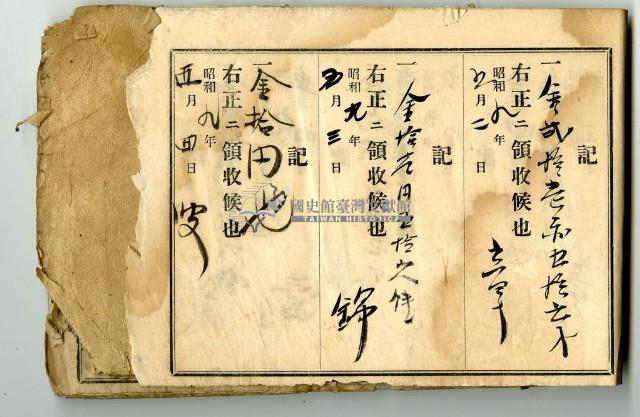 記
一金弐拾壱円五拾六才
右正ニ領收候也
昭和九年
五月二日
記
一金拾壱円五拾六仟
右正ニ領收候也
昭和九年
五月三日
錦
記
一金拾円也
右正ニ領收候也
昭和九年
五月四日
國史館臺灣文獻館
TAIWAN HISTORICA